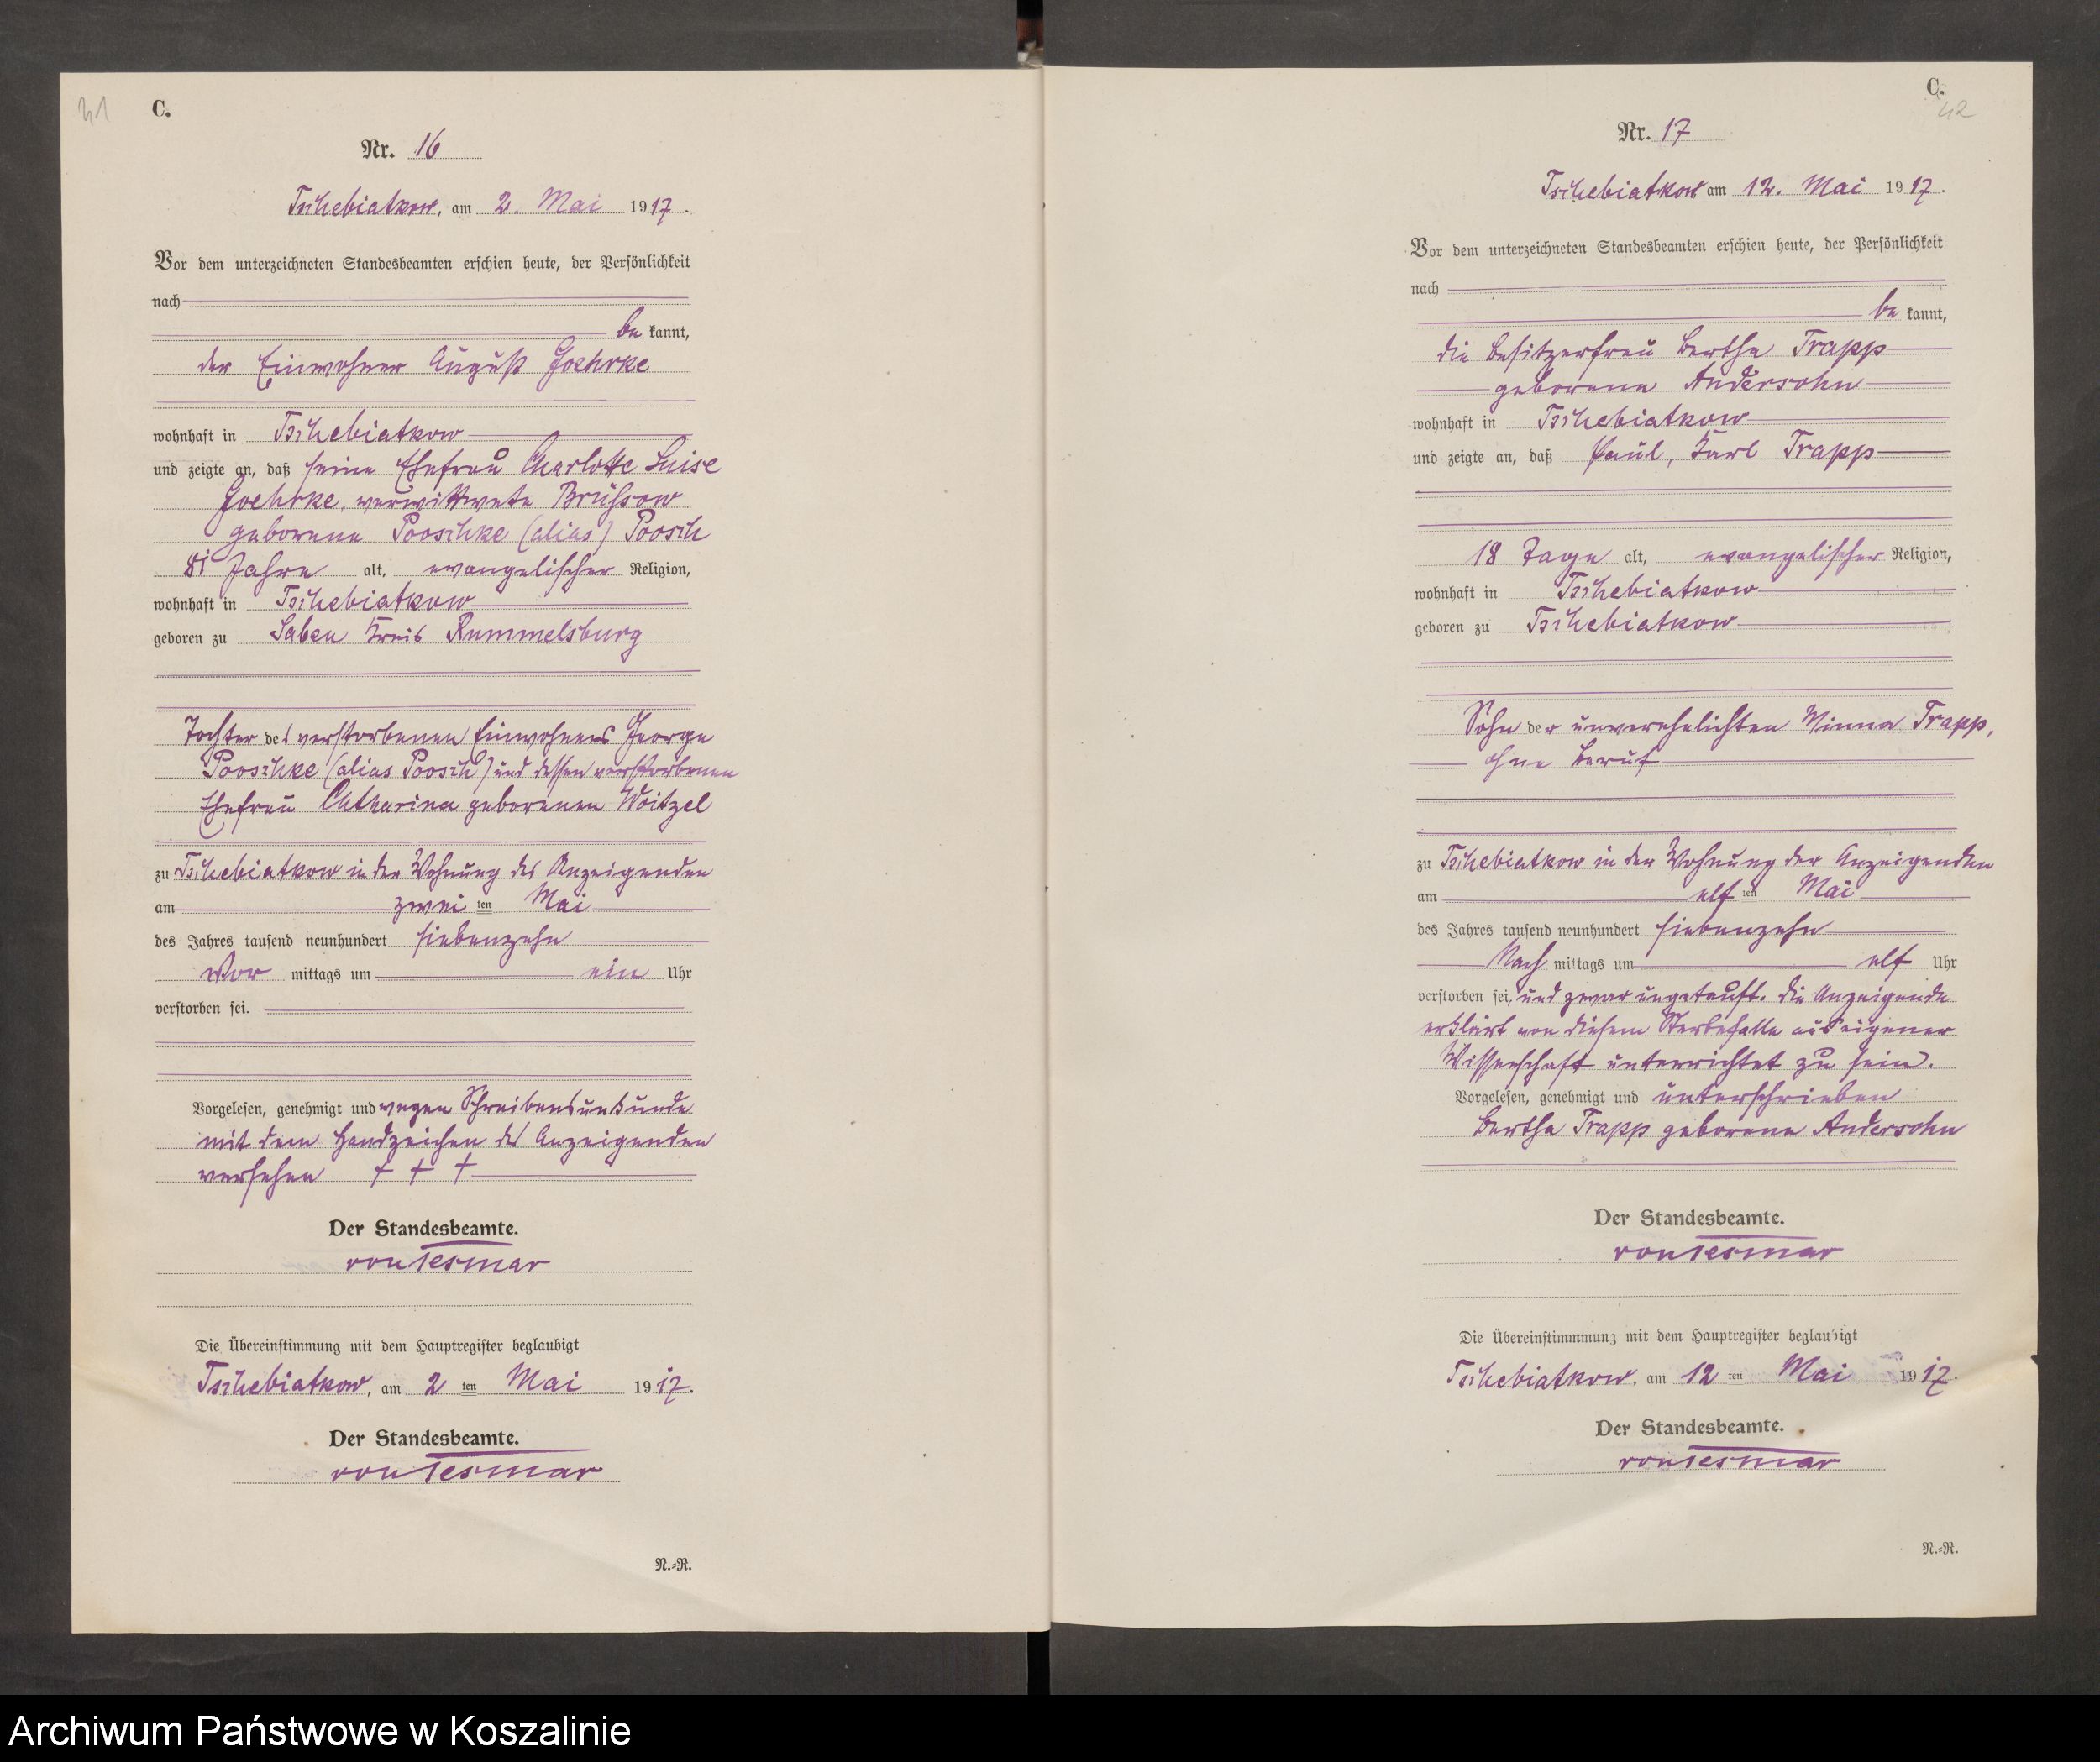 41
C.
Nr. 16
Tschebiatkow, am 2. Mai 1917.
Vor dem unterzeichneten Standesbeamten erschien heute, der Persönlichkeit
nach
be kannt,
der Einwohner August Goehrke
wohnhaft in Tschebiatkow
und zeigte an, daß seine Ehefrau Charlotte Luise
Goehrke, verwittwete Brüssow
geborene Pooschke (alias) Poosch
81 Jahre alt, evangelischer Religion,
wohnhaft in Tschebiatkow
geboren zu Saben Kreis Rummelsburg
Tochter des verstorbenen Einwohners George
Pooschke (alias Poosch) und dessen verstorbenen
Ehefrau Catharina geborenen Woitzel
zu Tschebiatkow in der Wohnung des Anzeigenden
am zwei ten Mai
des Jahres tausend neunhundert siebenzehn
Vor mittags um ein Uhr
verstorben sei.
Vorgelesen, genehmigt und wegen Schreibensunkunde
mit dem Handzeichen des Anzeigenden
versehen + + +
Der Standesbeamte.
von Tesmar
Die Übereinstimmung mit dem Hauptregister beglaubigt
Tschebiatkow, am 2 ten Mai 1917.
Der Standesbeamte.
von Tesmar
N.-R.
C.
42
Nr. 17
Tschebiatkow am 12. Mai 1917.
Vor dem unterzeichneten Standesbeamten erschien heute, der Persönlichkeit
nach
be kannt,
die Besitzerfrau Bertha Trapp
geborene Andersohn
wohnhaft in Tschebiatkow
und zeigte an, daß Paul, Karl Trapp
18 Tage alt, evangelischer Religion,
wohnhaft in Tschebiatkow
geboren zu Tschebiatkow
Sohn der unverehelichten Minna Trapp,
ohne Beruf
zu Tschebiatkow in der Wohnung der Anzeigenden
am elf ten Mai
des Jahres tausend neunhundert siebenzehn
Nach mittags um elf Uhr
verstorben sei, und zwar ungetauft. Die Anzeigende
erklärt von diesem Sterbefalle aus eigener
Wissenschaft unterrichtet zu sein.
Vorgelesen, genehmigt und unterschrieben
Bertha Trapp geborene Andersohn
Der Standesbeamte.
von Tesmar
Die Übereinstimmmung mit dem Hauptregister beglaubigt
Tschebiatkow, am 12 ten Mai 1917.
Der Standesbeamte.
von Tesmar
N.-R.
Archiwum Państwowe w Koszalinie